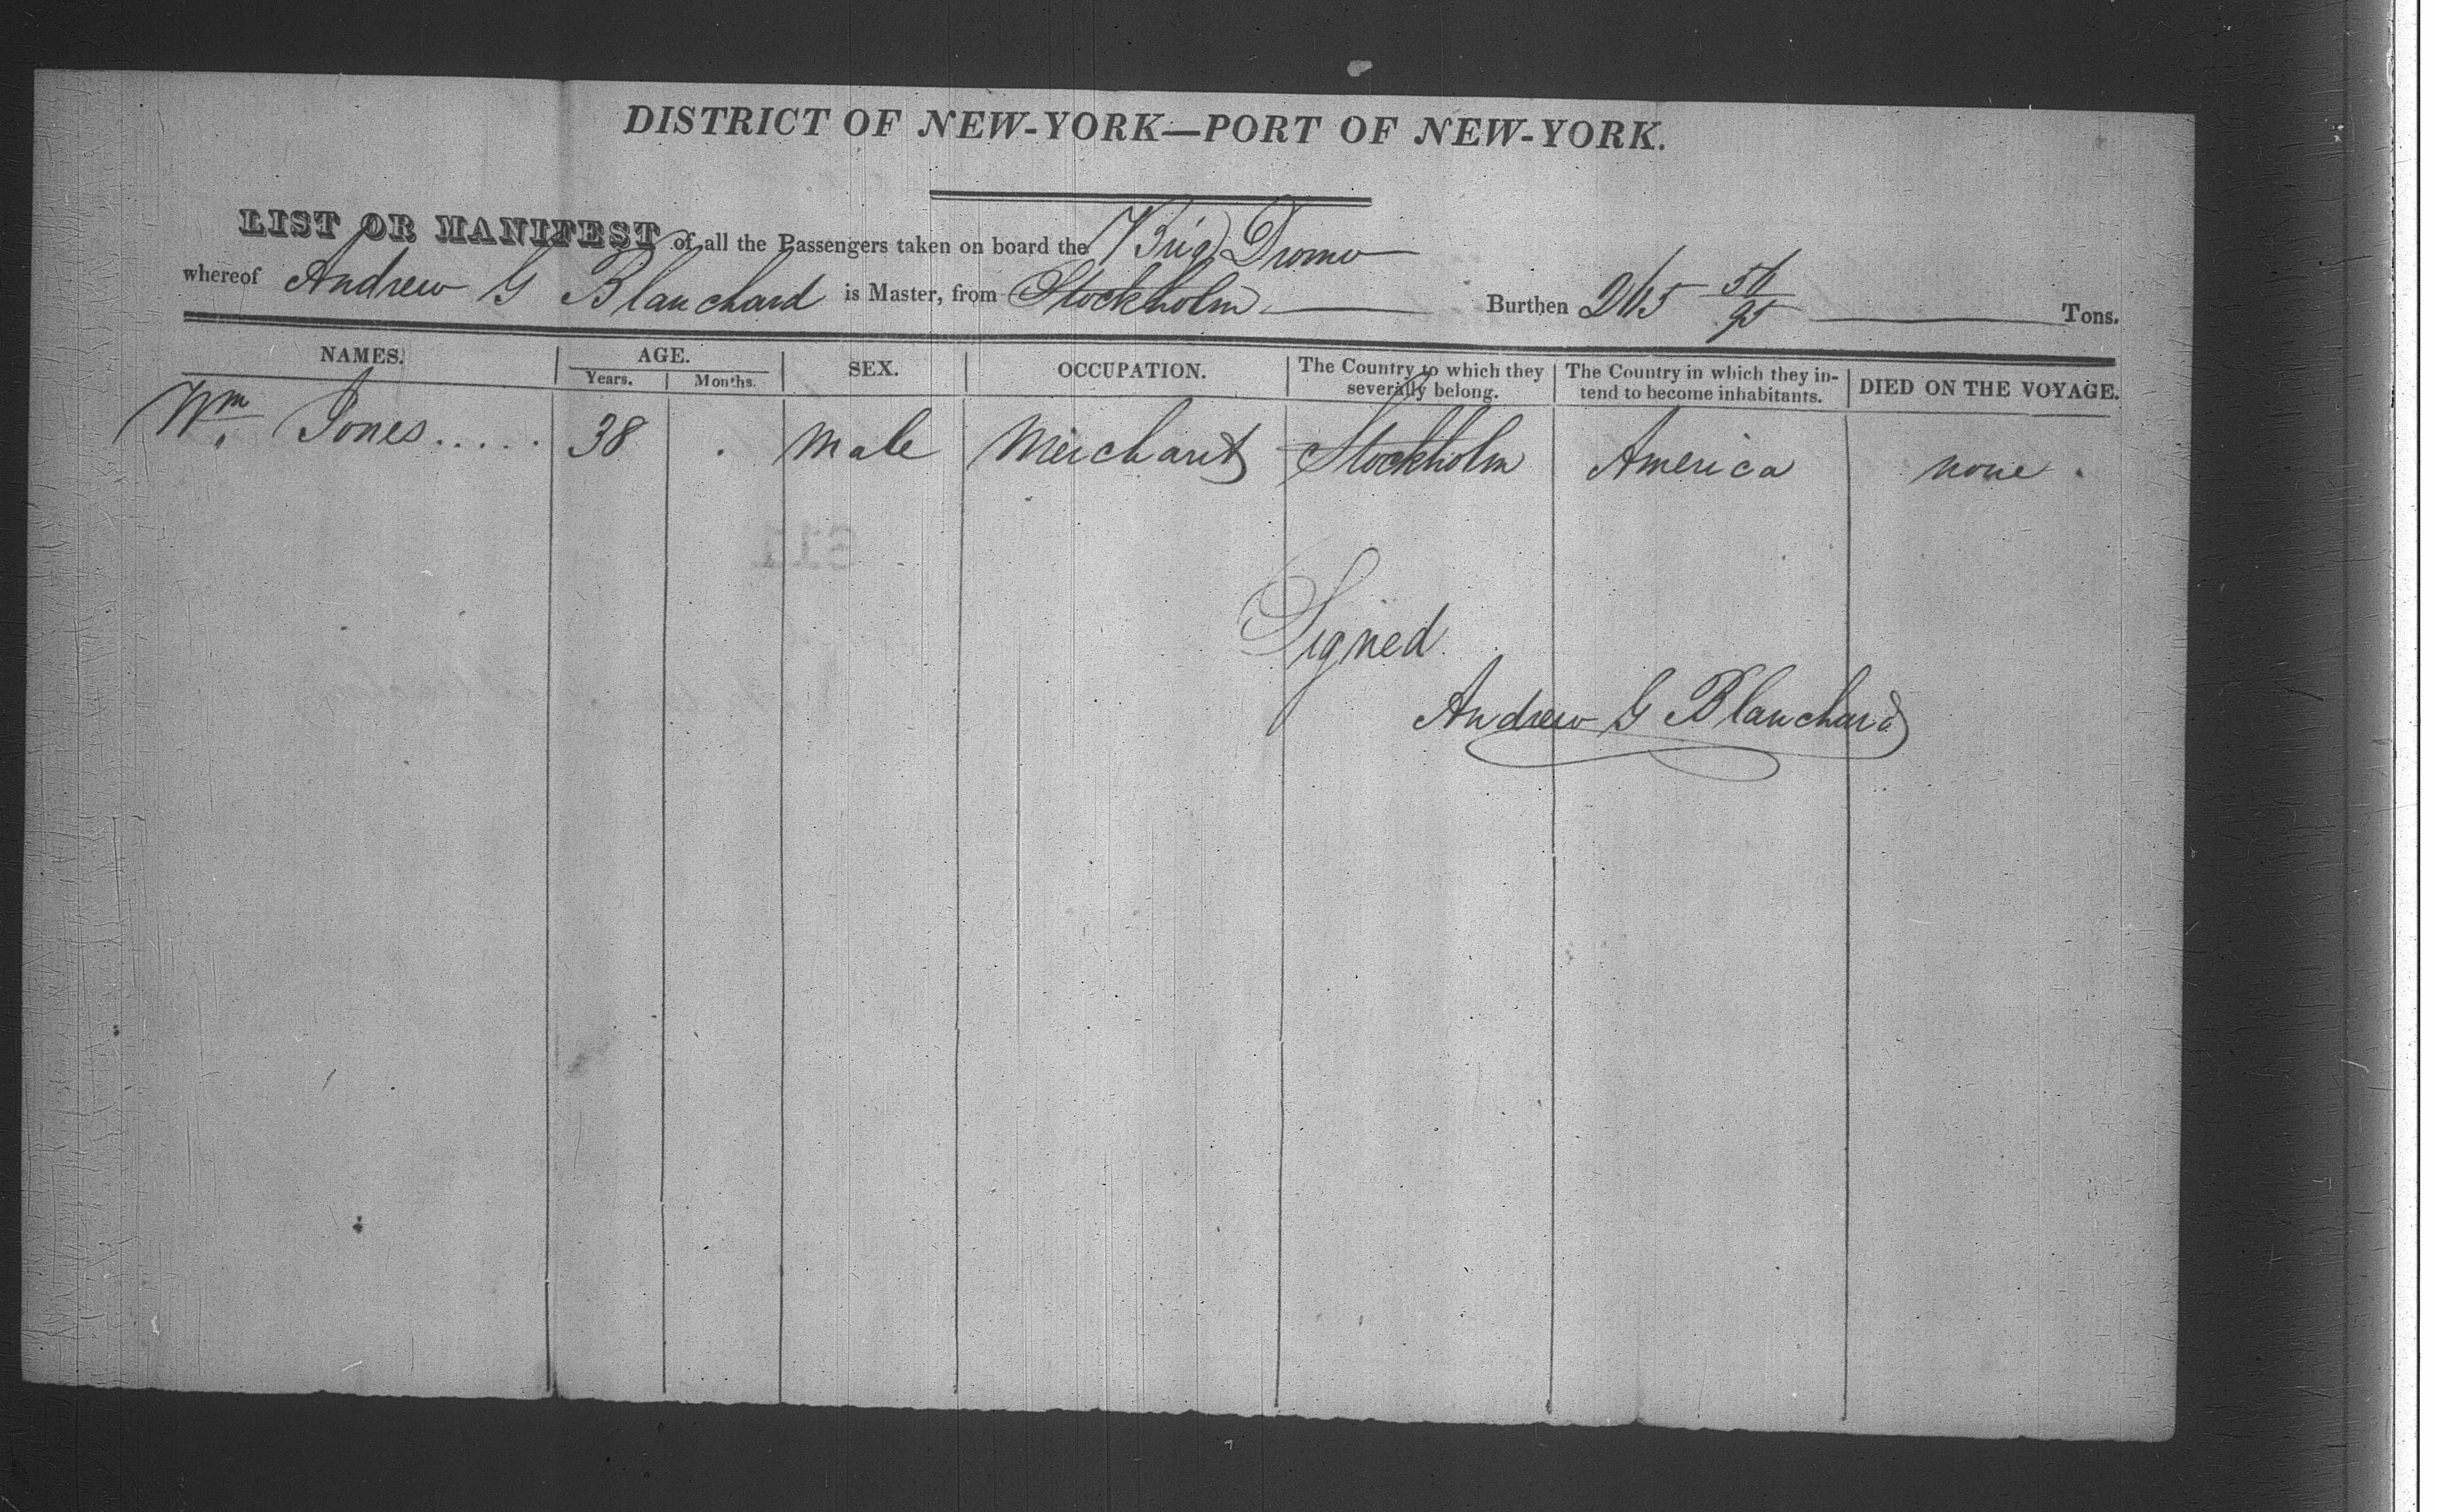 DISTRICT OF NEW-YORK—PORT OF NEW-YORK.
LIST OR MANIFEST of all the Passengers taken on board the Brig Dromo
whereof Andrew G Blanchard is Master, from Stockholm Burthen Tons.
NAMES. AGE. SEX. OCCUPATION. The Country to which they severally belong. The Country in which they intend to become inhabitants. DIED ON THE VOYAGE.
Years. Months.
Wm. Jones..... 38 . Male Merchant Stockholm America none.
Signed
Andrew G Blanchard